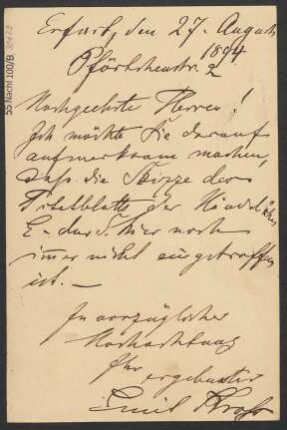 Erfurt, den 27. August
1894
Pförtchenstr. 2
Hochgeehrte Herren!
Ich möchte Sie darauf
aufmerksam machen,
daß die Skizze des
Titelblatts der
E-dur S. hier noch
immer nicht eingetroffen
ist. —
In vorzüglicher
Hochachtung
Ihr
ergebenster
Emil
55 Nachl 100/B